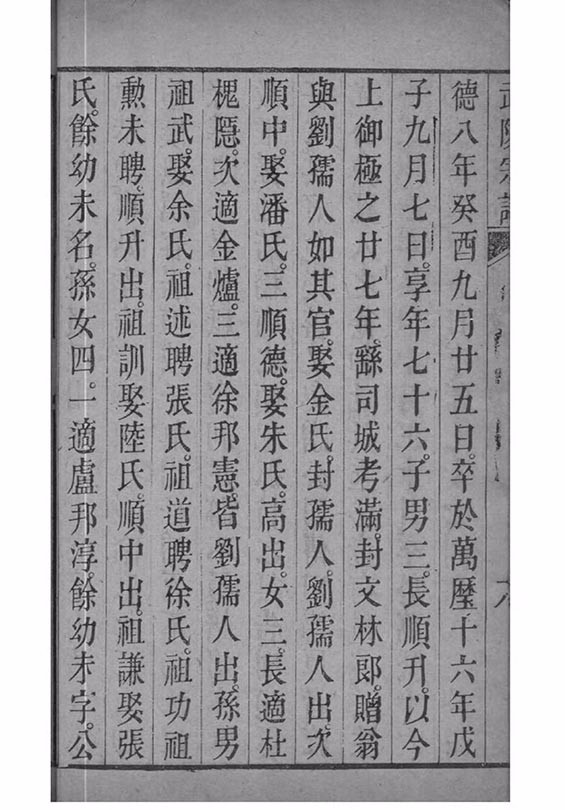 德八年癸酉九月廿五日。卒於萬曆十六年戊
子九月七日。享年七十六。子男三。長順升。以今
上御極之廿七年。繇司城考滿。封文林郎。贈翁
與劉孺人如其官。娶金氏。封孺人。劉孺人出。次
順中。娶潘氏。三順德。娶朱氏。高出。女三。長適杜
槐隱。次適金爐。三適徐邦憲。皆劉孺人出。孫男
祖武。娶余氏。祖述聘張氏。祖道聘徐氏。祖功祖
勳未聘。順升出。祖訓娶陸氏。順中出。祖謙娶張
氏。餘幼未名。孫女四。一適盧邦淳。餘幼未字。公